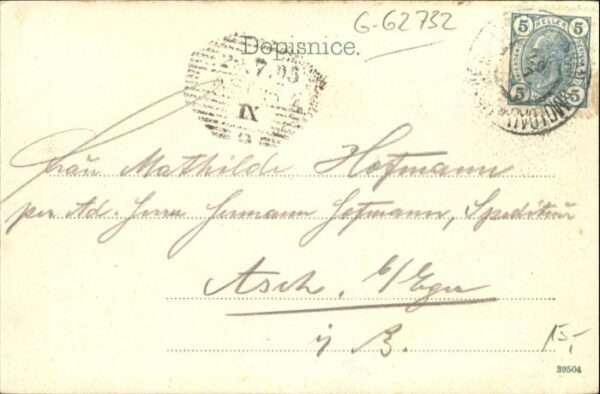 G-62732
Dopisnice.
5 HELLER 5
5 5
7
IX
Frau Mathilde Hofmann
per Ad. Herrn Hermann Hofmann, Spediteur
Asch. b/Eger
i/ B.
15,-
39504